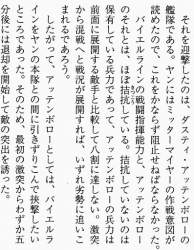 それを迎撃したのは、ダスティ・アッテンボロー
艦隊である。ヤンにはミッターマイヤーの作戦意図が
読めたので、これをかならず阻止せねばならなかった。
バイエルラインの戦闘指揮能力と、アッテンボロー
のそれとは、ほぼ拮抗している。拮抗していないのは
保有している兵力であって、アッテンボローの兵力は
前面に展開する敵手と比較して八割に達しない。激突
から混戦へと戦況が展開すれば、いずれ劣勢に追いこ
まれるであろう。
したがって、アッテンボローとしては、バイエルラ
インをヤンの本隊との間に引きずりこんで挟撃したい
ところであった。そのため、最初の激突からわずか五
分後には退却を開始して敵の突出を誘った。